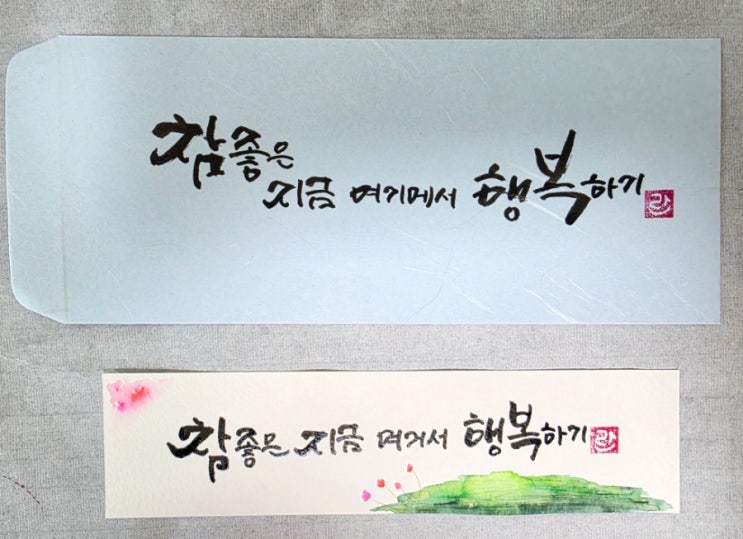 참좋은
지금 여기에서 행복하기
란
참좋은 지금 여기서 행복하기
란